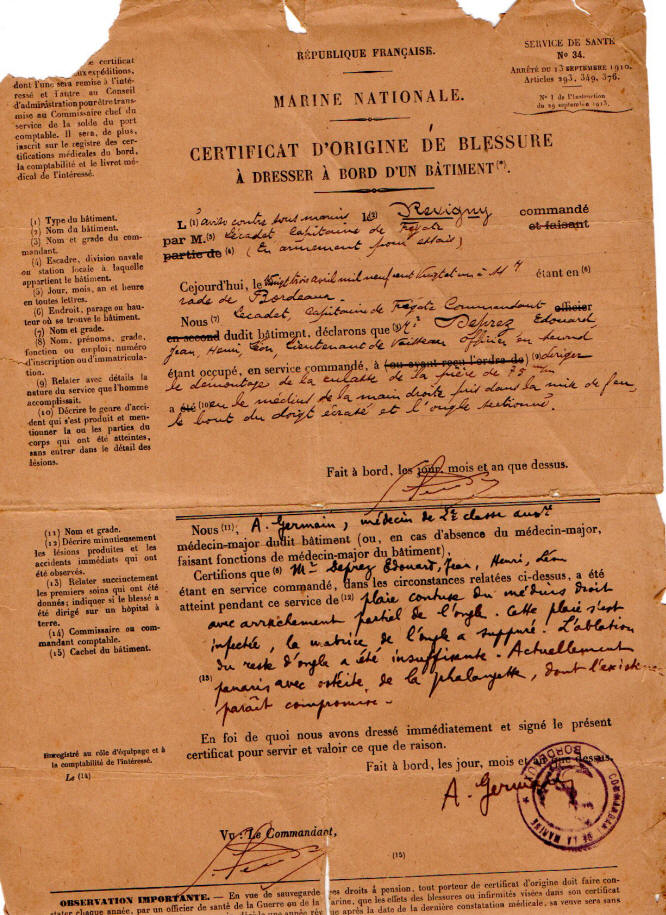 RÉPUBLIQUE FRANÇAISE.
MARINE NATIONALE.
CERTIFICAT D'ORIGINE DE BLESSURE
À DRESSER À BORD D'UN BÂTIMENT(*).
SERVICE DE SANTÉ
No 34.
ARRÊTÉ DU 13 SEPTEMBRE 1910.
Articles 293, 349, 376.
No 1 de l'Instruction
du 29 septembre 1913.
certificat
ux expéditions,
dont l'une sera remise à l'inté-
ressé et l'autre au Conseil
d'administration pour être trans-
mise au Commissaire chef du
service de la solde du port
comptable. Il sera, de plus,
inscrit sur le registre des cer-
tifications médicales du bord,
la comptabilité et le livret mé-
dical de l'intéressé.
(1) Type du bâtiment.
(2) Nom du bâtiment.
(3) Nom et grade du com-
mandant.
(4) Escadre, division navale
ou station locale à laquelle
appartient le bâtiment.
(5) Jour, mois, an et heure
en toutes lettres.
(6) Endroit, parage ou hau-
teur où se trouve le bâtiment.
(7) Nom et grade.
(8) Nom, prénoms, grade,
fonction ou emploi; numéro
d'inscription ou d'immatricula-
tion.
(9) Relater avec détails la
nature du service que l'homme
accomplissait.
(10) Décrire le genre d'acci-
dent qui s'est produit et men-
tionner la ou les parties du
corps qui ont été atteintes,
sans entrer dans le détail des
lésions.
L (1) aviso contre sous marins le (2) Revigny commandé
par M. (3) Lécadet, Capitaine de frégate et faisant
partie de (4) (En armement pour essais)
Cejourd'hui, le vingt trois avril mil neuf cent vingt et un à 11 h étant en (6)
rade de Bordeaux.
Nous (7) Lécadet, capitaine de frégate Commandant officier
en second dudit bâtiment, déclarons que (8) Mr Deprez Edouard
Jean, Henri, Léon, Lieutenant de Vaisseau officier en second
étant occupé, en service commandé, à (ou ayant reçu l'ordre de) (9) diriger
le démontage de la culasse de la pièce de 75 m/m
a été (10) eu le médius de la main droite pris dans la mise de feu,
le bout du doigt écrasé et l'ongle sectionné.
Fait à bord, les jour, mois et an que dessus.
(11) Nom et grade.
(12) Décrire minutieusement
les lésions produites et les
accidents immédiats qui ont
été observés.
(13) Relater succinctement
les premiers soins qui ont été
donnés; indiquer si le blessé a
été dirigé sur un hôpital à
terre.
(14) Commissaire ou com-
mandant comptable.
(15) Cachet du bâtiment.
Nous (11), A. Germain, médecin de 2e classe auxre
médecin-major dudit bâtiment (ou, en cas d'absence du médecin-major,
faisant fonctions de médecin-major du bâtiment),
Certifions que (8) Mr Deprez Edouard, Jean, Henri, Léon
étant en service commandé, dans les circonstances relatées ci-dessus, a été
atteint pendant ce service de (12) plaie contuse du médius droit
avec arrachement partiel de l'ongle. Cette plaie s'est
infectée, la matrice de l'ongle a suppuré. L'ablation
du reste d'ongle a été insuffisante. Actuellement
(13) panaris avec ostéite de la phalangette, dont l'existence
paraît compromise.
En foi de quoi nous avons dressé immédiatement et signé le présent
certificat pour servir et valoir ce que de raison.
Fait à bord, les jour, mois et an que dessus.
A. Germain
COMMANDANT DE LA MARINE
BORDEAUX
Enregistré au rôle d'équipage et à
la comptabilité de l'intéressé.
Le (14)
Vu : Le Commandant,
(15)
OBSERVATION IMPORTANTE. — En vue de sauvegarde
es droits à pension, tout porteur de certificat d'origine doit faire con-
stater chaque année, par un officier de santé de la Guerre ou de la
arine, que les effets des blessures ou infirmités visées dans son certificat
e après la date de la dernière constatation médicale, sa veuve sera sans